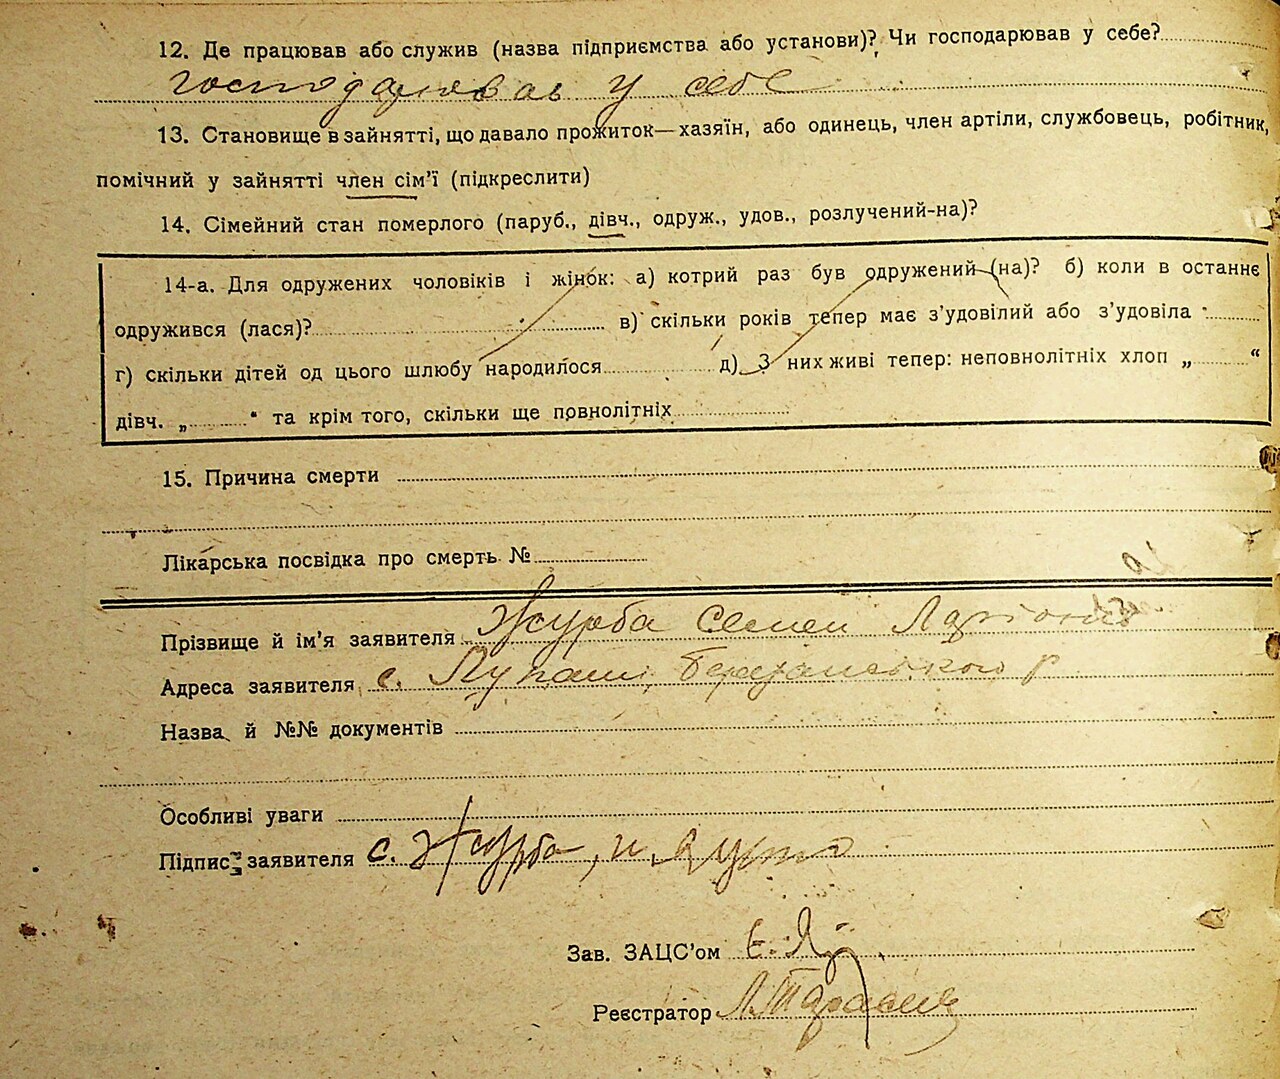 12. Де працював або служив (назва підприємства або установи)? Чи господарював у себе?
господарював у себе
13. Становище в зайнятті, що давало прожиток—хазяїн, або одинець, член артілі, службовець, робітник,
помічний у зайнятті член сім'ї (підкреслити)
14. Сімейний стан померлого (паруб., дівч., одруж., удов., розлучений-на)?
14-а. Для одружених чоловіків і жінок: а) котрий раз був одружений (на)? б) коли в останнє
одружився (лася)? в) скільки років тепер має з'удовілий або з'удовіла
г) скільки дітей од цього шлюбу народилося д) З них живі тепер: неповнолітніх хлоп „ “
дівч. „ “ та крім того, скільки ще повнолітніх
15. Причина смерти
Лікарська посвідка про смерть №
Прізвище й ім'я заявителя Журба Семен
Адреса заявителя с.
Назва й №№ документів
Особливі уваги
Підпис заявителя С. Журба, и
Зав. ЗАЦС'ом
Реєстратор